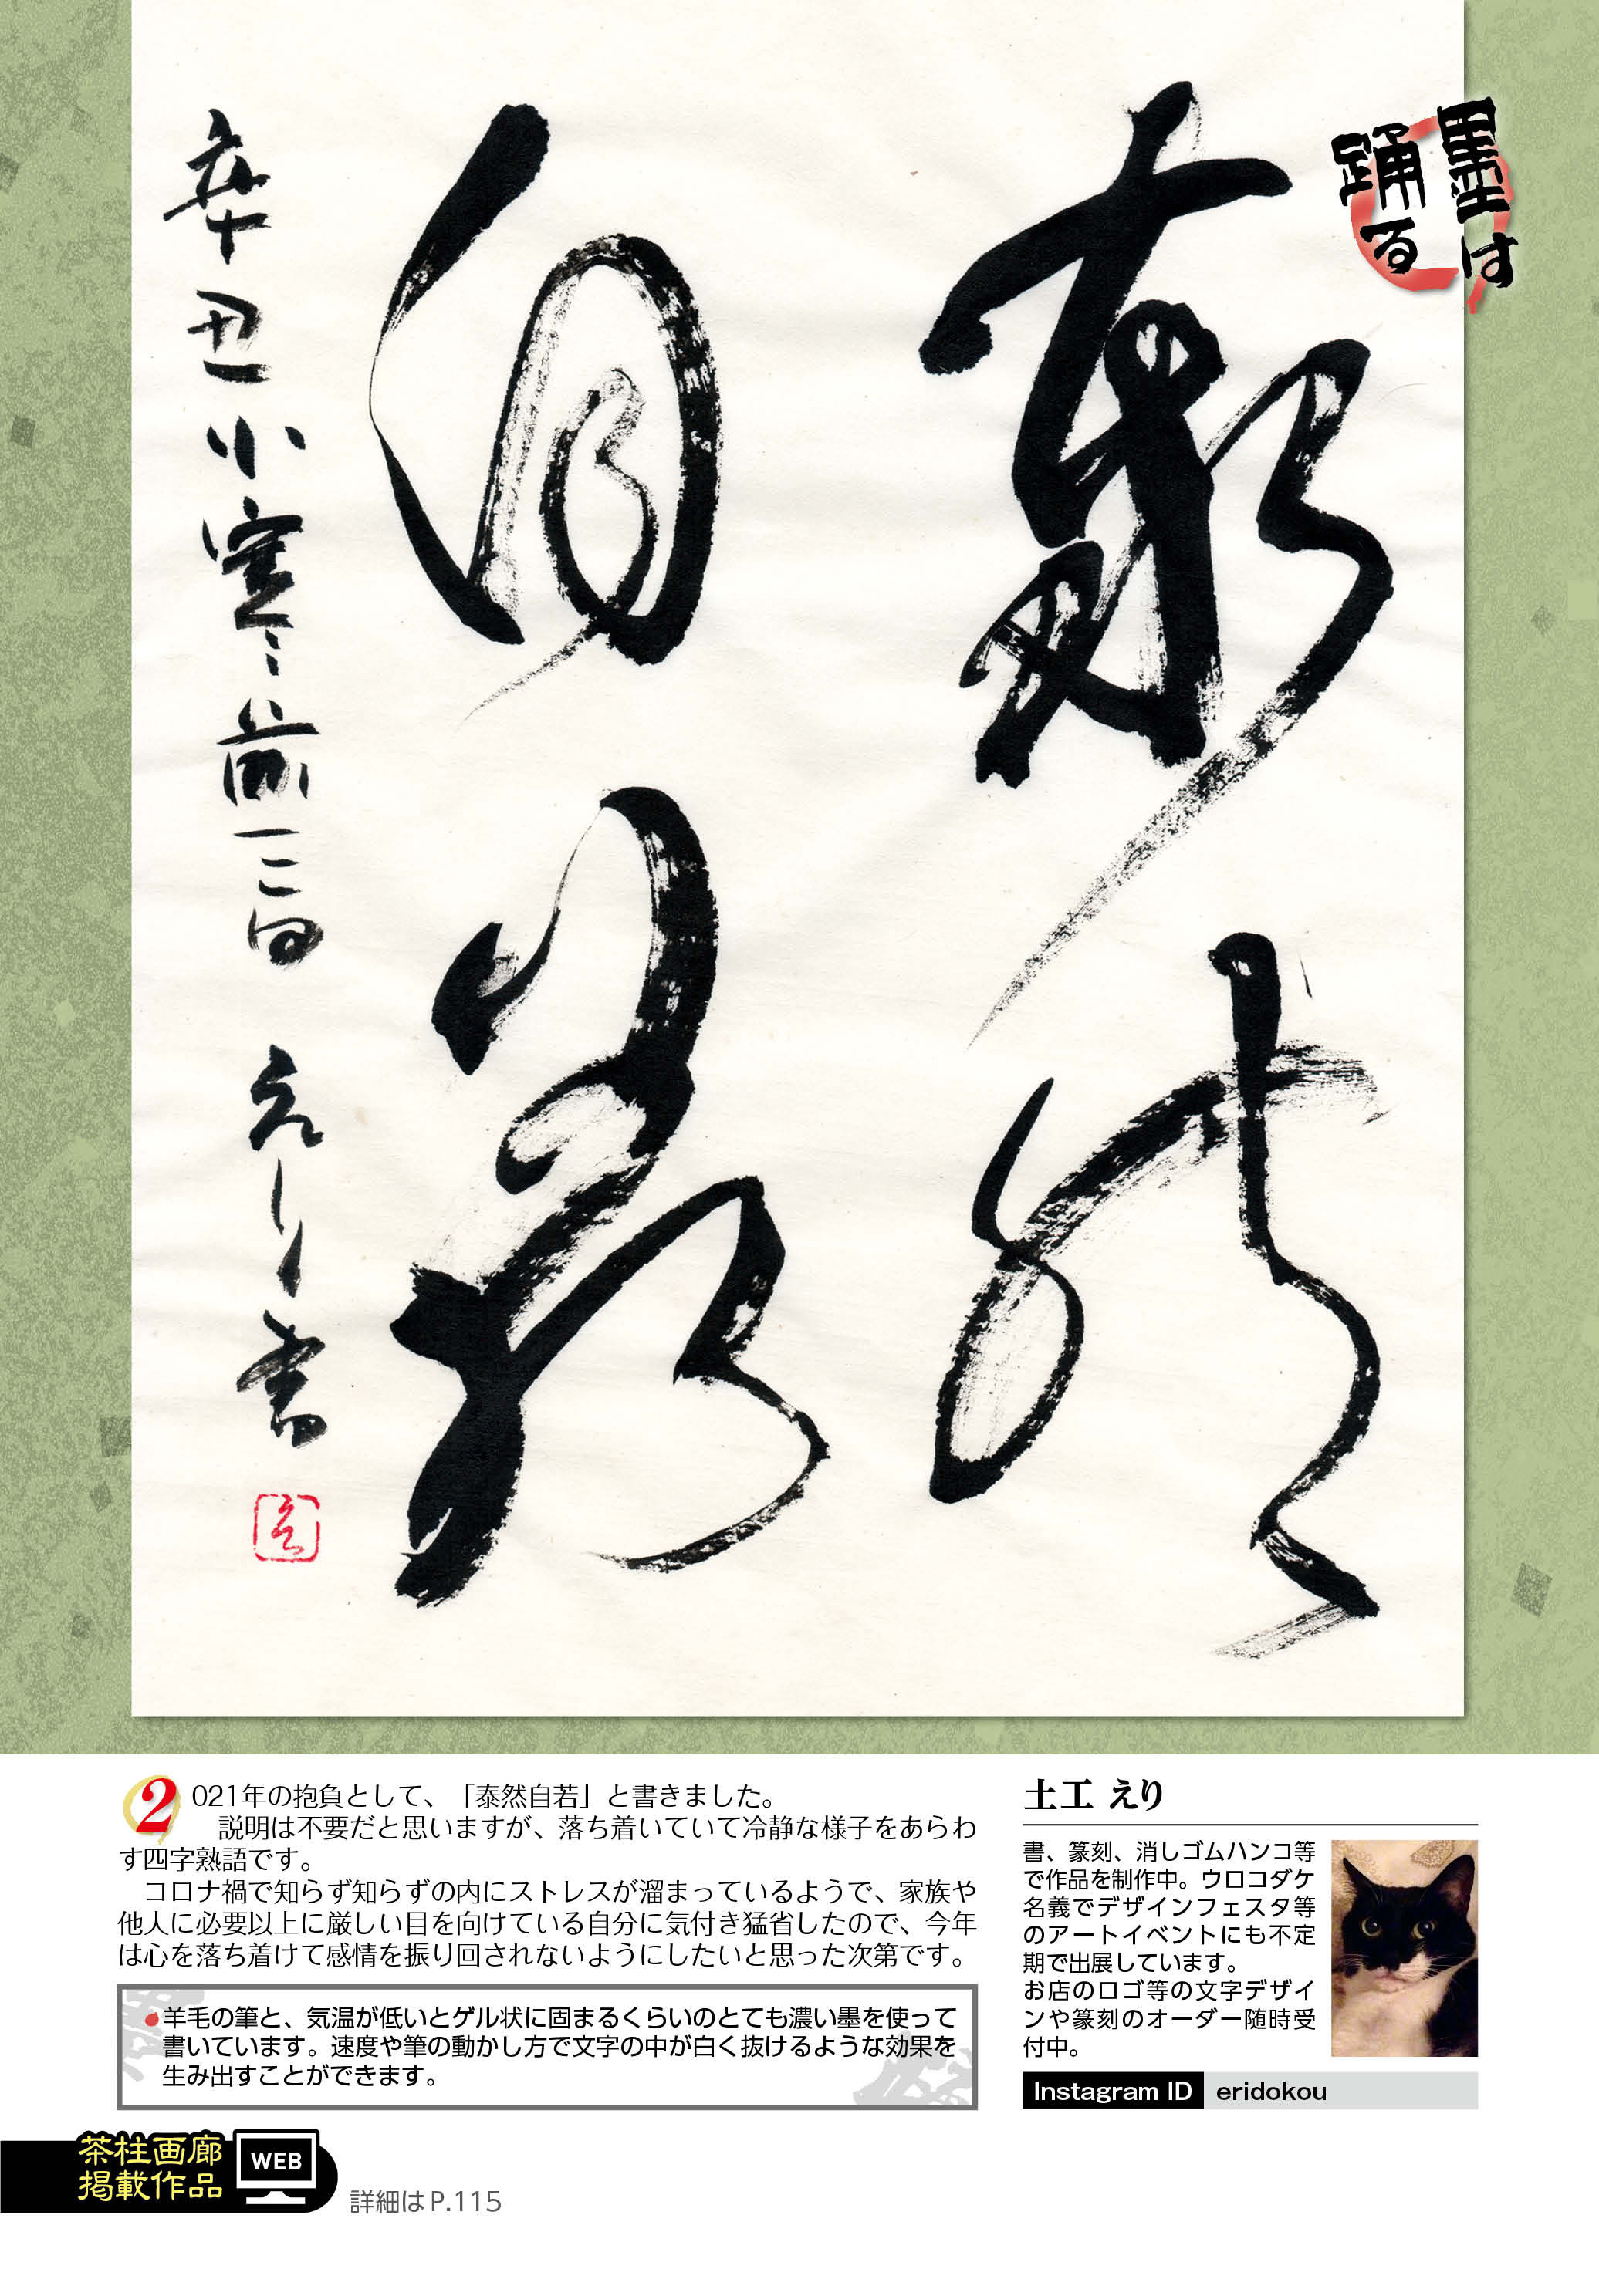 墨は
踊る
泰然
自若
辛丑小寒前二日 えり書
2021年の抱負として、「泰然自若」と書きました。
説明は不要だと思いますが、落ち着いていて冷静な様子をあらわ
す四字熟語です。
コロナ禍で知らず知らずの内にストレスが溜まっているようで、家族や
他人に必要以上に厳しい目を向けている自分に気付き猛省したので、今年
は心を落ち着けて感情を振り回されないようにしたいと思った次第です。
●羊毛の筆と、気温が低いとゲル状に固まるくらいのとても濃い墨を使って
書いています。速度や筆の動かし方で文字の中が白く抜けるような効果を
生み出すことができます。
土工 えり
書、篆刻、消しゴムハンコ等
で作品を制作中。ウロコダケ
名義でデザインフェスタ等
のアートイベントにも不定
期で出展しています。
お店のロゴ等の文字デザイ
ンや篆刻のオーダー随時受
付中。
Instagram ID eridokou
茶柱画廊
掲載作品
WEB
詳細はP.115